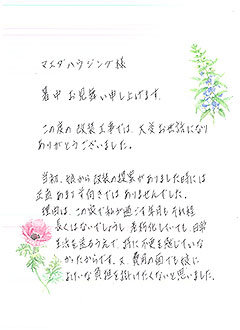 マエダハウジング様
暑中お見舞い申し上げます。
この度の改装工事では、大変お世話になり
ありがとうございました。
当初、娘から改装の提案がありました時には
正直あまり乗り気ではありませんでした。
理由は、この家で私が過ごす年月もそれ程
長くはないでしょうし、老朽化していても、日常
生活を送るうえで、特に不便を感じていな
かったからです。又、費用の面でも娘に
よけいな負担を掛けたくないと思いました。